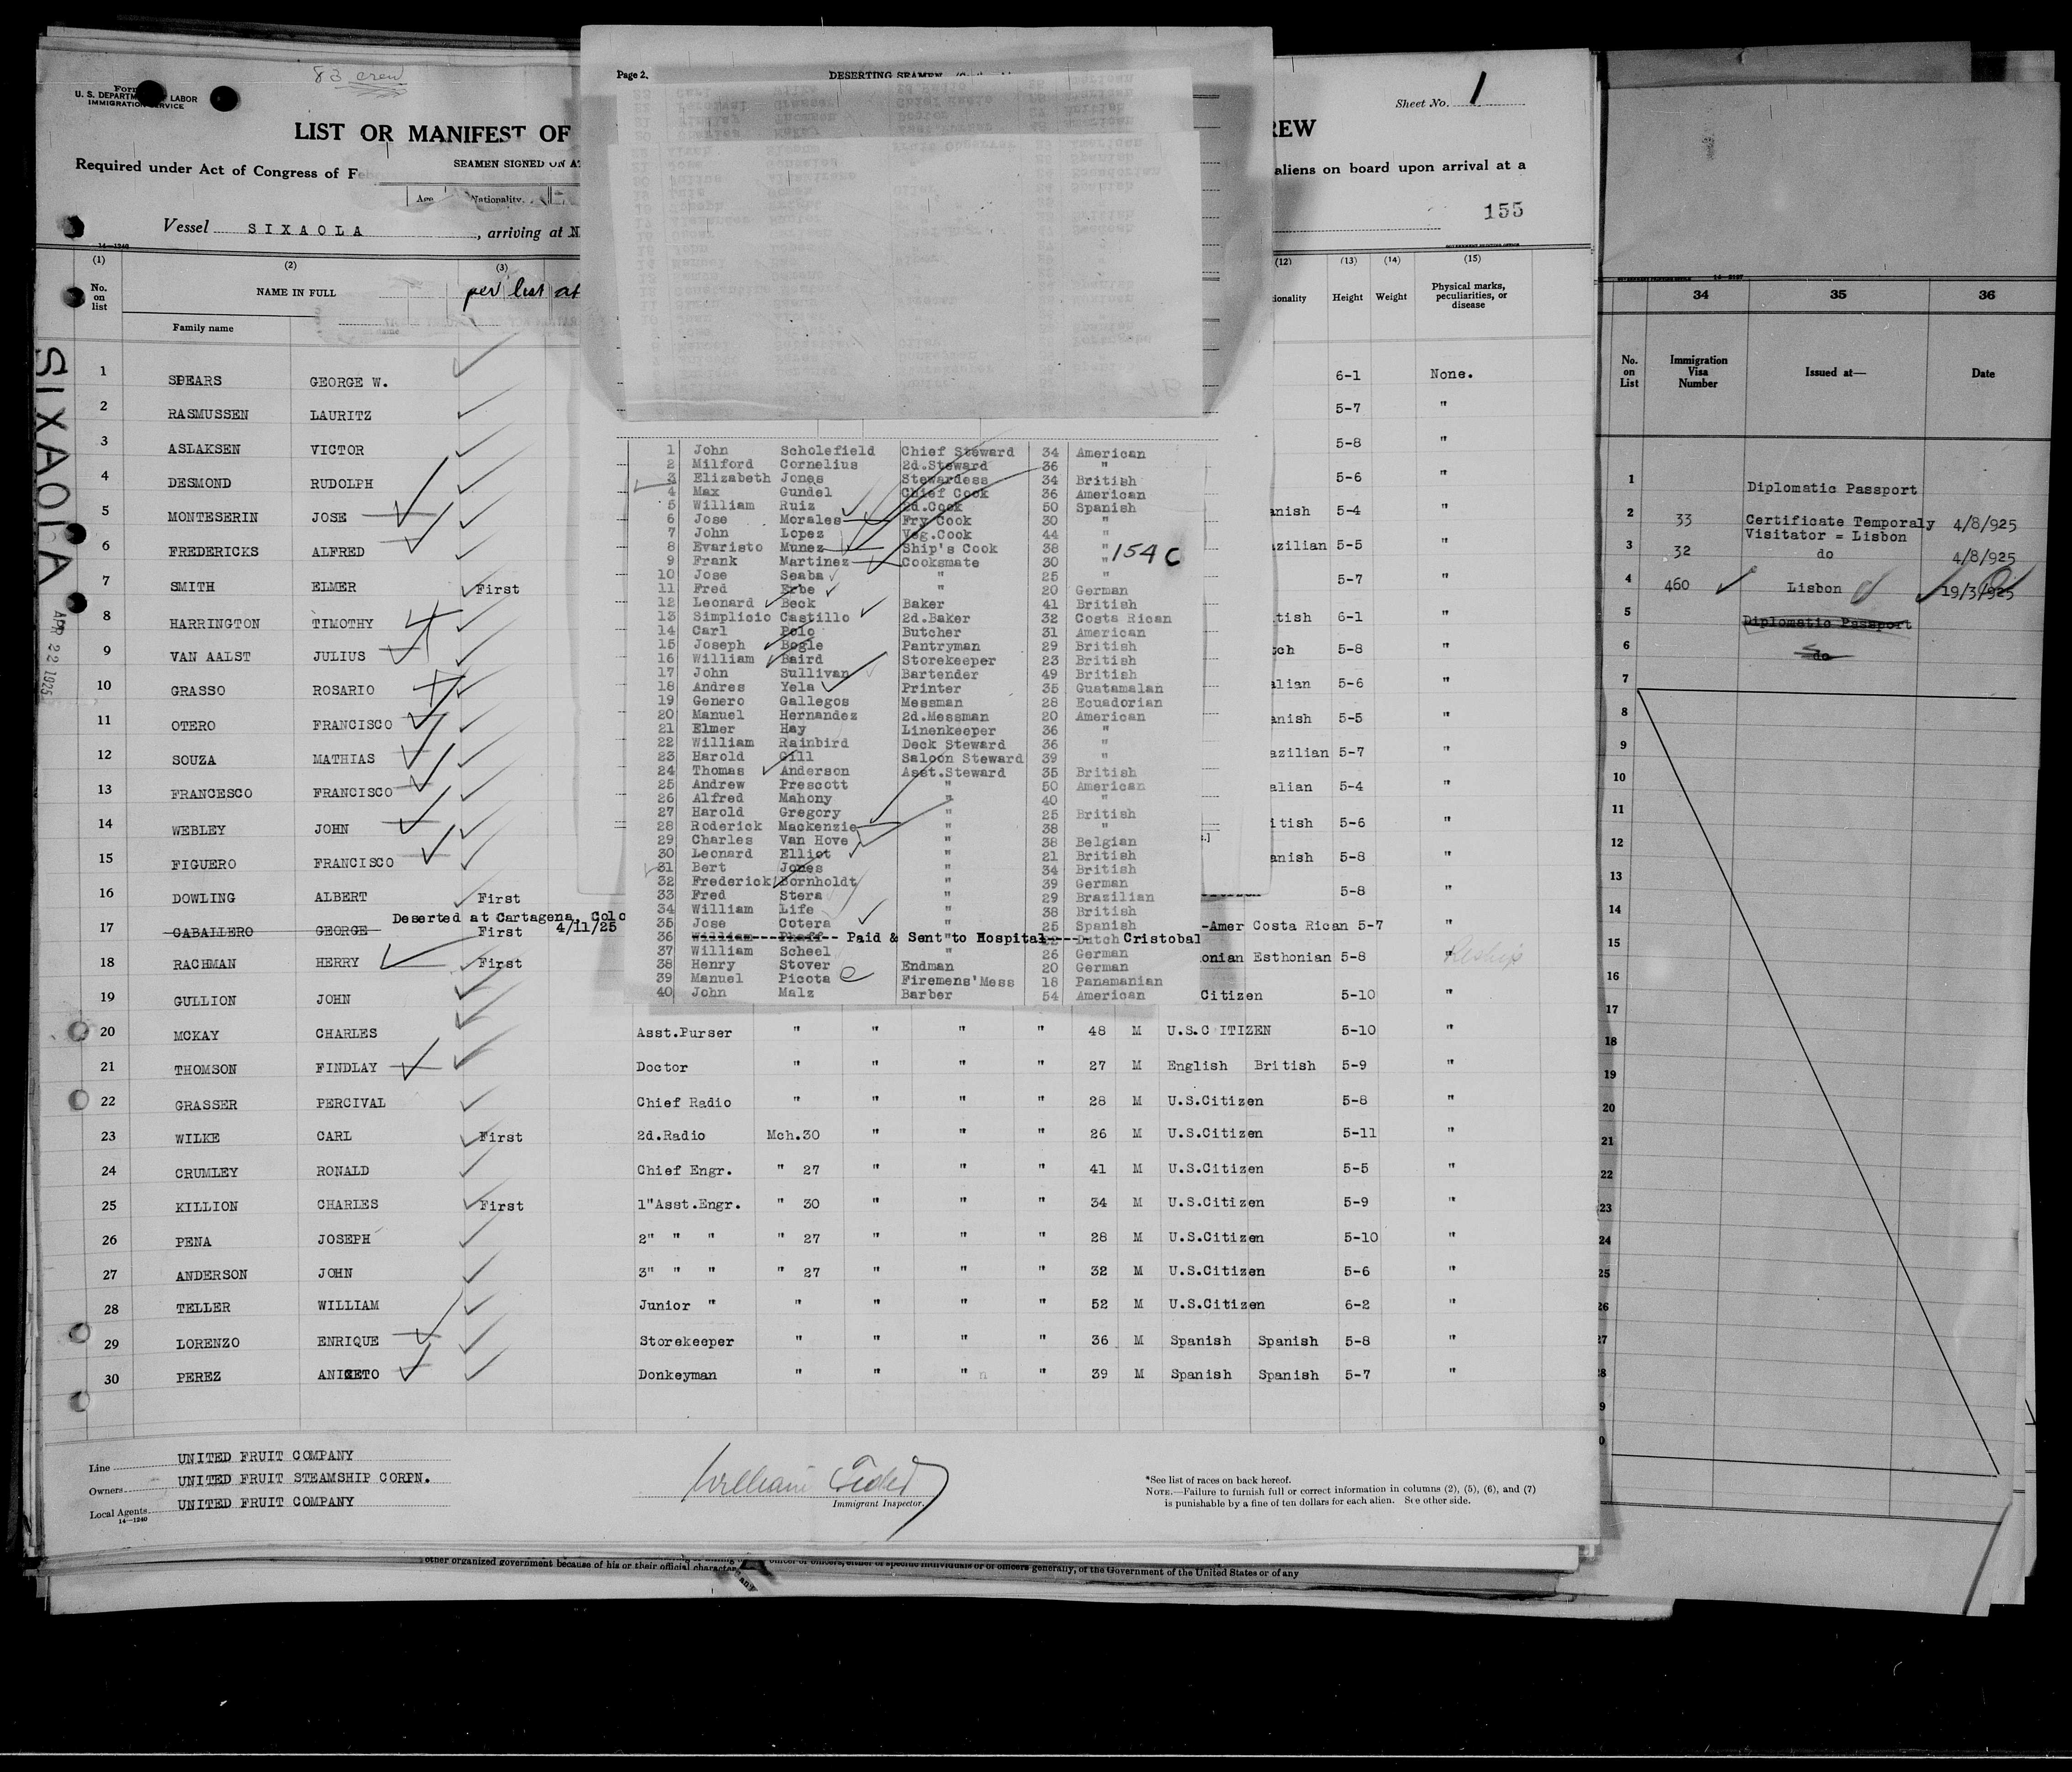 83 crew
Form
U. S. DEPARTM LABOR
IMMIGRATION SERVICE
LIST OR MANIFEST OF
REW
Sheet No. 1
Required under Act of Congress of F
SEAMEN SIGNED ON AT
aliens on board upon arrival at a
Age Nationality.
155
Vessel SIXAOLA, arriving at N
14-1240
(1) (2) (3) (12) (13) (14) (15)
No. on list NAME IN FULL per list at ionality Height Weight Physical marks, peculiarities, or disease
Family name
1 SPEARS GEORGE W. 6-1 None.
2 RASMUSSEN LAURITZ 5-7 "
3 ASLAKSEN VICTOR 5-8 "
4 DESMOND RUDOLPH 5-6 "
5 MONTESERIN JOSE anish 5-4 "
6 FREDERICKS ALFRED zilian 5-5 "
7 SMITH ELMER First 5-7 "
8 HARRINGTON TIMOTHY tish 6-1 "
9 VAN AALST JULIUS tch 5-8 "
10 GRASSO ROSARIO alian 5-6 "
11 OTERO FRANCISCO anish 5-5 "
12 SOUZA MATHIAS azilian 5-7 "
13 FRANCESCO FRANCISCO alian 5-4 "
14 WEBLEY JOHN itish 5-6 "
15 FIGUERO FRANCISCO anish 5-8 "
16 DOWLING ALBERT First 5-8 "
Deserted at Cartagena, Colo
17 CABALLERO GEORGE First 4/11/25 -Amer Costa Rican 5-7 "
18 RACHMAN HERRY First onian Esthonian 5-8 "
19 GULLION JOHN Citizen 5-10 "
20 MCKAY CHARLES Asst.Purser " " " " 48 M U.S.C ITIZEN 5-10 "
21 THOMSON FINDLAY Doctor " " " " 27 M English British 5-9 "
22 GRASSER PERCIVAL Chief Radio " " " " 28 M U.S.Citizen 5-8 "
23 WILKE CARL First 2d.Radio Mch.30 " " " 26 M U.S.Citizen 5-11 "
24 CRUMLEY RONALD Chief Engr. " 27 " " " 41 M U.S.Citizen 5-5 "
25 KILLION CHARLES First 1"Asst.Engr. " 30 " " " 34 M U.S.Citizen 5-9 "
26 PENA JOSEPH 2" " " " 27 " " " 28 M U.S.Citizen 5-10 "
27 ANDERSON JOHN 3" " " " 27 " " " 32 M U.S.Citizen 5-6 "
28 TELLER WILLIAM Junior " " " " " 52 M U.S.Citizen 6-2 "
29 LORENZO ENRIQUE Storekeeper " " " " 36 M Spanish Spanish 5-8 "
30 PEREZ ANICETO Donkeyman " " " " 39 M Spanish Spanish 5-7 "
Line UNITED FRUIT COMPANY
Owners UNITED FRUIT STEAMSHIP CORPN.
Local Agents UNITED FRUIT COMPANY
14-1240
William
Immigrant Inspector.
*See list of races on back hereof.
NOTE.—Failure to furnish full or correct information in columns (2), (5), (6), and (7)
is punishable by a fine of ten dollars for each alien. See other side.
other organized government because of his or their official character
officer or officers, either of specific individuals or of officers generally, of the Government of the United States or of any
SIXAOLA
APR 22 1925
Page 2. DESERTING SEAMEN
1 John Scholefield Chief Steward 34 American
2 Milford Cornelius 2d.Steward 36 "
3 Elizabeth Jones Stewardess 34 British
4 Max Gundel Chief Cook 36 American
5 William Ruiz 2d.Cook 50 Spanish
6 Jose Morales Fry Cook 30 "
7 John Lopez Veg.Cook 44 "
8 Evaristo Munez Ship's Cook 38 "
154 C
9 Frank Martinez Cooksmate 30 "
10 Jose Seaba " 25 "
11 Fred Erbe " 20 German
12 Leonard Beck Baker 41 British
13 Simplicio Castillo 2d.Baker 32 Costa Rican
14 Carl Polo Butcher 31 American
15 Joseph Bogle Pantryman 29 British
16 William Baird Storekeeper 23 British
17 John Sullivan Bartender 49 British
18 Andres Yela Printer 35 Guatamalan
19 Genero Gallegos Messman 28 Ecuadorian
20 Manuel Hernandez 2d.Messman 20 American
21 Elmer Hay Linenkeeper 36 "
22 William Rainbird Deck Steward 36 "
23 Harold Gill Saloon Steward 39 "
24 Thomas Anderson Asst.Steward 35 British
25 Andrew Prescott " 50 American
26 Alfred Mahony " 40 "
27 Harold Gregory " 25 British
28 Roderick Mackenzie " 38 "
29 Charles Van Hove " 38 Belgian
30 Leonard Elliot " 21 British
31 Bert Jones " 34 British
32 Frederick Bornholdt " 39 German
33 Fred Stera " 29 Brazilian
34 William Life " 38 British
35 Jose Cotera " 25 Spanish
36 William Phaff Paid & Sent to Hospital Dutch Cristobal
37 William Scheel " 26 German
38 Henry Stover Endman 20 German
39 Manuel Picota Firemens'Mess 18 Panamanian
40 John Malz Barber 54 American
34 35 36
No. on List Immigration Visa Number Issued at— Date
1 Diplomatic Passport
2 33 Certificate Temporaly 4/8/925
Visitator = Lisbon
3 32 do 4/8/925
4 460 Lisbon 19/3/925
5 Diplomatic Passport
6 do
7
8
9
10
11
12
13
14
15
16
17
18
19
20
21
22
23
24
25
26
27